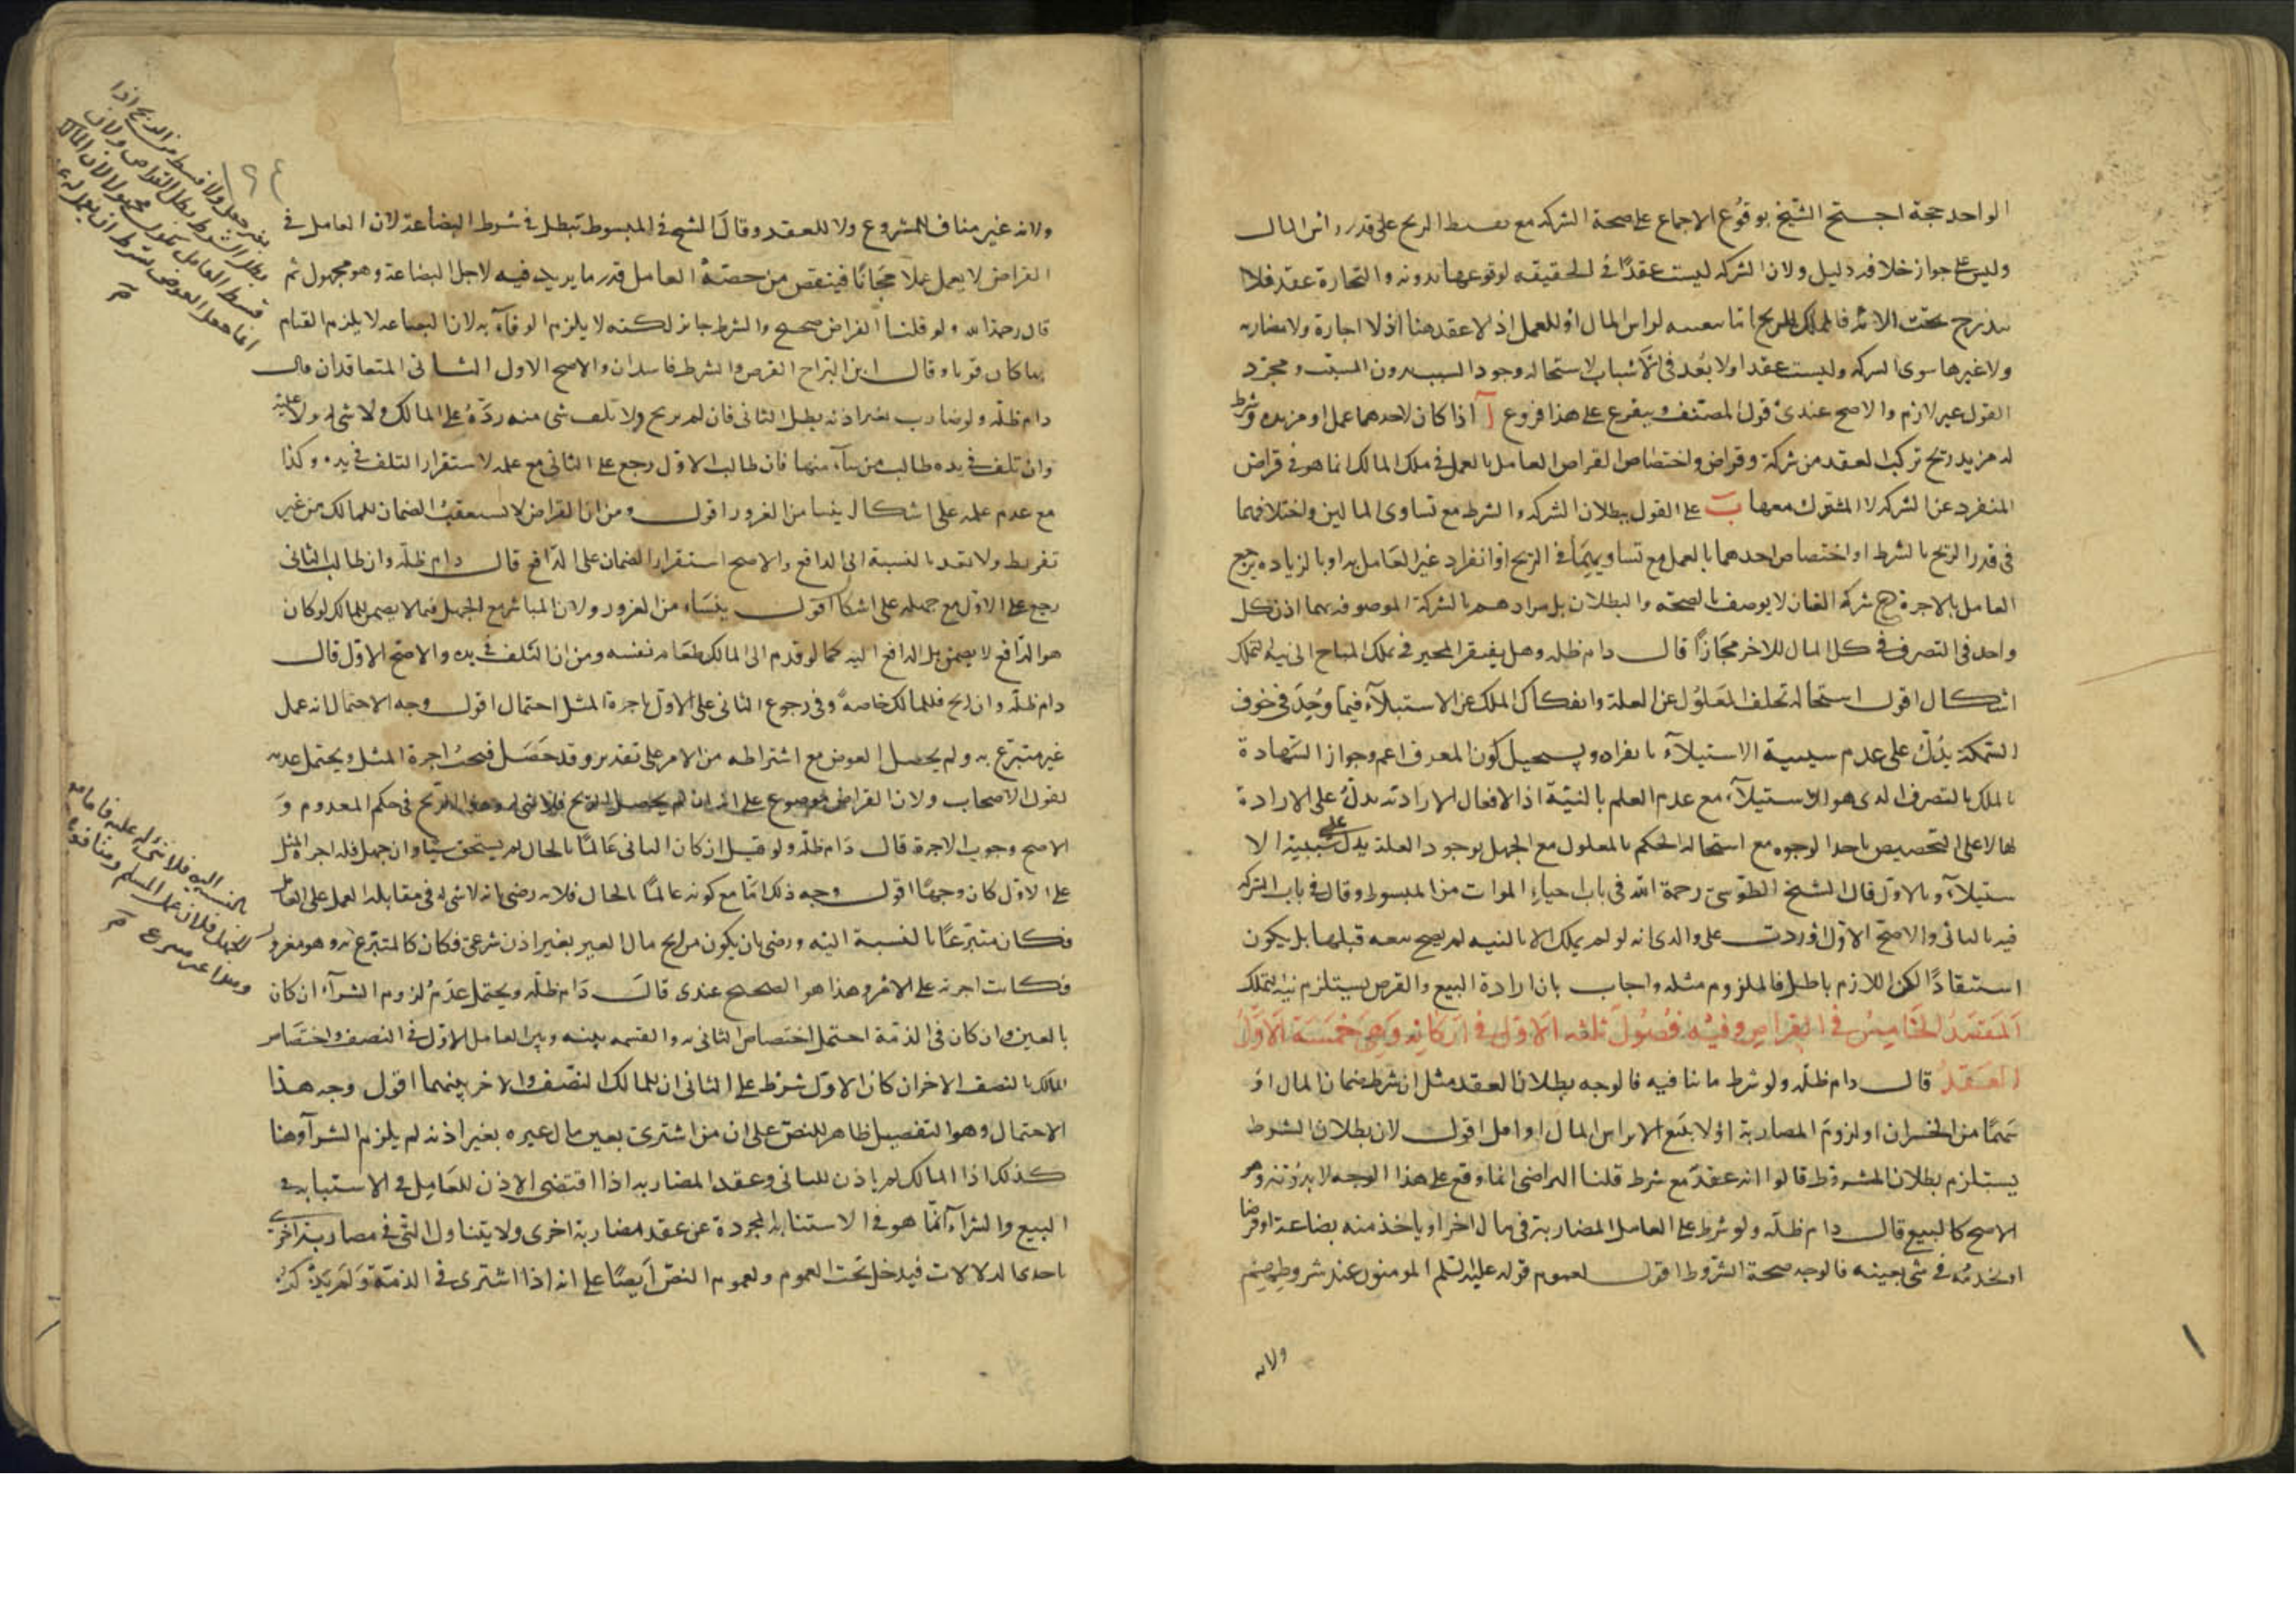 الواحد حجة احتج الشيخ بوقوع الاجماع على صحة الشركة مع بسط الربح على قدر راس المال
وليس على جواز خلافه دليل ولان الشركه ليست عقدًا في الحقيقه لوقوعها بدونه والتجارة عقد فلا
يندرج تحت الاية فالملك للربح اما لراس المال او للعمل اذ لا عقد هنا اذ لا اجارة ولا مضاربه
ولا غيرها سوى الشركه وليست عقدا ولا بعد في الاسباب لاستحاله وجود المسبب بدون السبب ومجرد
القول غير لازم والاصح عندى قول المصنف ويتفرع على هذا فروع آ اذا كان لاحدهما عمل او مزيده وشرط
له مزيد ربح تركب العقد من شركة وقراض واختصاص القراض العامل بالعمل في ملك المالك انما هو في قراض
المنفرد عن الشركه لا المشترك معها ب على القول ببطلان الشركه والشرط مع تساوى المالين واختلافهما
فى قدر الربح بالشرط او اختصاص احدهما بالعمل مع تساويهما في الربح او انفراد غير العامل به او بالزياده يرجع
العامل بالاجرة ج شركه العنان لا يوصف بالصحة والبطلان بل مرادهم بالشركة الموصوفه بهما اذن كل
واحد فى التصرف في كل المال للاخر مجازًا قال دام ظله وهل يفتقر المحيز في تملك المباح الى نية التملك
اشكال اقول استحالة تخلف المعلول عن العلة وانفكاك الملك عن الاستيلاء فيما وجد في خوف
السمكة يدل على عدم سببية الاستيلاء بانفراده ويستحيل كون المعرف اعم وجواز الشهادة
بالملك بالتصرف الذى هو الاستيلاء مع عدم العلم بالنية اذ الافعال الارادية تدل على الارادة
لها لا على التخصيص باحد الوجوه مع استحالة الحكم بالمعلول مع الجهل بوجود العلة يدل على سببية الا
ستيلاء وبالاول قال الشيخ الطوسى رحمة الله في باب احياء الموات من المبسوط وقال في باب الشركه
فيه بالثانى والاصح الاول اوردت على والدى انه لو لم يملك الا بالنيه لم يصح بيعه قبلها بل يكون
استنقاذًا لكن اللازم باطل فالملزوم مثله واجاب بان ارادة البيع والقرض يستلزم نية التملك
المقصد الخامس في القراض وفيه فصول ثلثه الاول في اركانه وهي خمسة الاول
العقد قال دام ظله ولو شرط ما ينافيه فالوجه بطلان العقد مثل ان شرط ضمان المال او
سهمًا من الخسران او لزوم المضاربة او لا يبيع الا براس المال او اقل اقول لان بطلان الشرط
يستلزم بطلان المشروط قالوا انه عقد مع شرط قلنا التراضى انما وقع على هذا الوجه لا بدونه وهو
الاصح كالبيع قال دام ظله ولو شرط على العامل المضاربة في مال اخر او ياخذ منه بضاعة او قرضا
او يخدمه في شي بعينه فالوجه صحة الشروط اقول لعموم قوله عليه السلم المومنون عند شروطهم
ولانه
١٢٤
ولانه غير مناف للمشروع ولا للعقد وقال الشيخ في المبسوط تبطل في شرط البضاعة لان العامل في
القراض لا يعمل عملا مجانًا فينقص من حصة العامل قدر ما يزيد فيه لاجل البضاعة وهو مجهول ثم
قال رحمة الله ولو قلنا القراض صحيح والشرط جايز لكنه لا يلزم الوفاء به لان البضاعه لا يلزم القيام
بها كان قويا وقال ابن البراج القرض والشرط فاسدان والاصح الاول الثانى المتعاقدان قال
دام ظله ولو ضارب بغير اذنه بطل الثانى فان لم يربح ولا تلف شي منه رده على المالك ولا شى له ولا عليه
وان تلف في يده طالب من شاء منهما فان طالب الاول رجع على الثانى مع علمه لاستقرار التلف في يده وكذا
مع عدم علمه على اشكال ينشا من الغرور اقول ومن ان القراض لا يستعقب الضمان للمالك من غير
تفريط ولا تعد بالنسبة الى الدافع والاصح استقرار الضمان على الدافع قال دام ظله وان طالب الثانى
رجع على الاول مع جهله على اشكال اقول ينشاء من الغرور ولان المباشر مع الجهل فيما لا يضمن للمالك لو كان
هو الدافع لا يضمن بل الدافع اليه كما لو قدم الى المالك طعامه نفسه ومن ان التلف في يده والاصح الاول قال
دام ظله وان ربح فللمالك خاصه وفى رجوع الثانى على الاول باجرة المثل احتمال اقول وجه الاحتمال انه عمل
غير متبرع به ولم يحصل العوض مع اشتراطه من الامر على تقدير وقد حصل فيجب اجرة المثل ويحتمل عدمه
لقول الاصحاب ولان القراض موضوع على انه ان لم يحصل الربح فلا شي له وهذا الربح في حكم المعدوم و
الاصح وجوب الاجرة قال دام ظله ولو قيل ان كان الثانى عالمًا بالحال لم يستحق شيا وان جهل فله اجرة المثل
على الاول كان وجها اقول وجه ذلك اما مع كونه عالما بالحال فلانه رضى بانه لا شي له في مقابله العمل على العامل
فكان متبرعًا بالنسبة اليه ورضى بان يكون من ربح مال الغير بغير اذن شرعي فكان كالمتبرع به وهو مغرور
فكانت اجرته على الامر وهذا هو الصحيح عندى قال دام ظله ويحتمل عدم لزوم الشراء ان كان
بالعين وان كان في الذمة احتمل اختصاص الثانى به والقسمه بينه وبين العامل الاول في النصف واختصاص
المالك بالنصف الاخر ان كان الاول شرط على الثانى ان للمالك النصف والاخر بينهما اقول وجه هذا
الاحتمال وهو التفصيل ظاهر للنص على ان من اشترى بعين مال غيره بغير اذنه لم يلزم الشراء وهنا
كذلك اذا المالك لم ياذن للثانى وعقد المضاربه اذا اقتضى الاذن للعامل في الاستنابه في
البيع والشراء انما هو في الاستنابة المجردة عن عقد مضاربة اخرى ولا يتناول التي في مضاربة اخرى
باحدى الدلالات فيدخل تحت العموم ولعموم النص ايضًا على انه اذا اشترى في الذمة ولم يذكر
بغير جعل ولا قسط من الربح اذا
بطل الشرط بطل القراض ولان
قسط العامل يكون مجهولا لان المالك
انما جعل العوض بشرط ان يعمل له
بالنسبه اليه فلا شى له عليه
للجهل فلان عمل المسلم